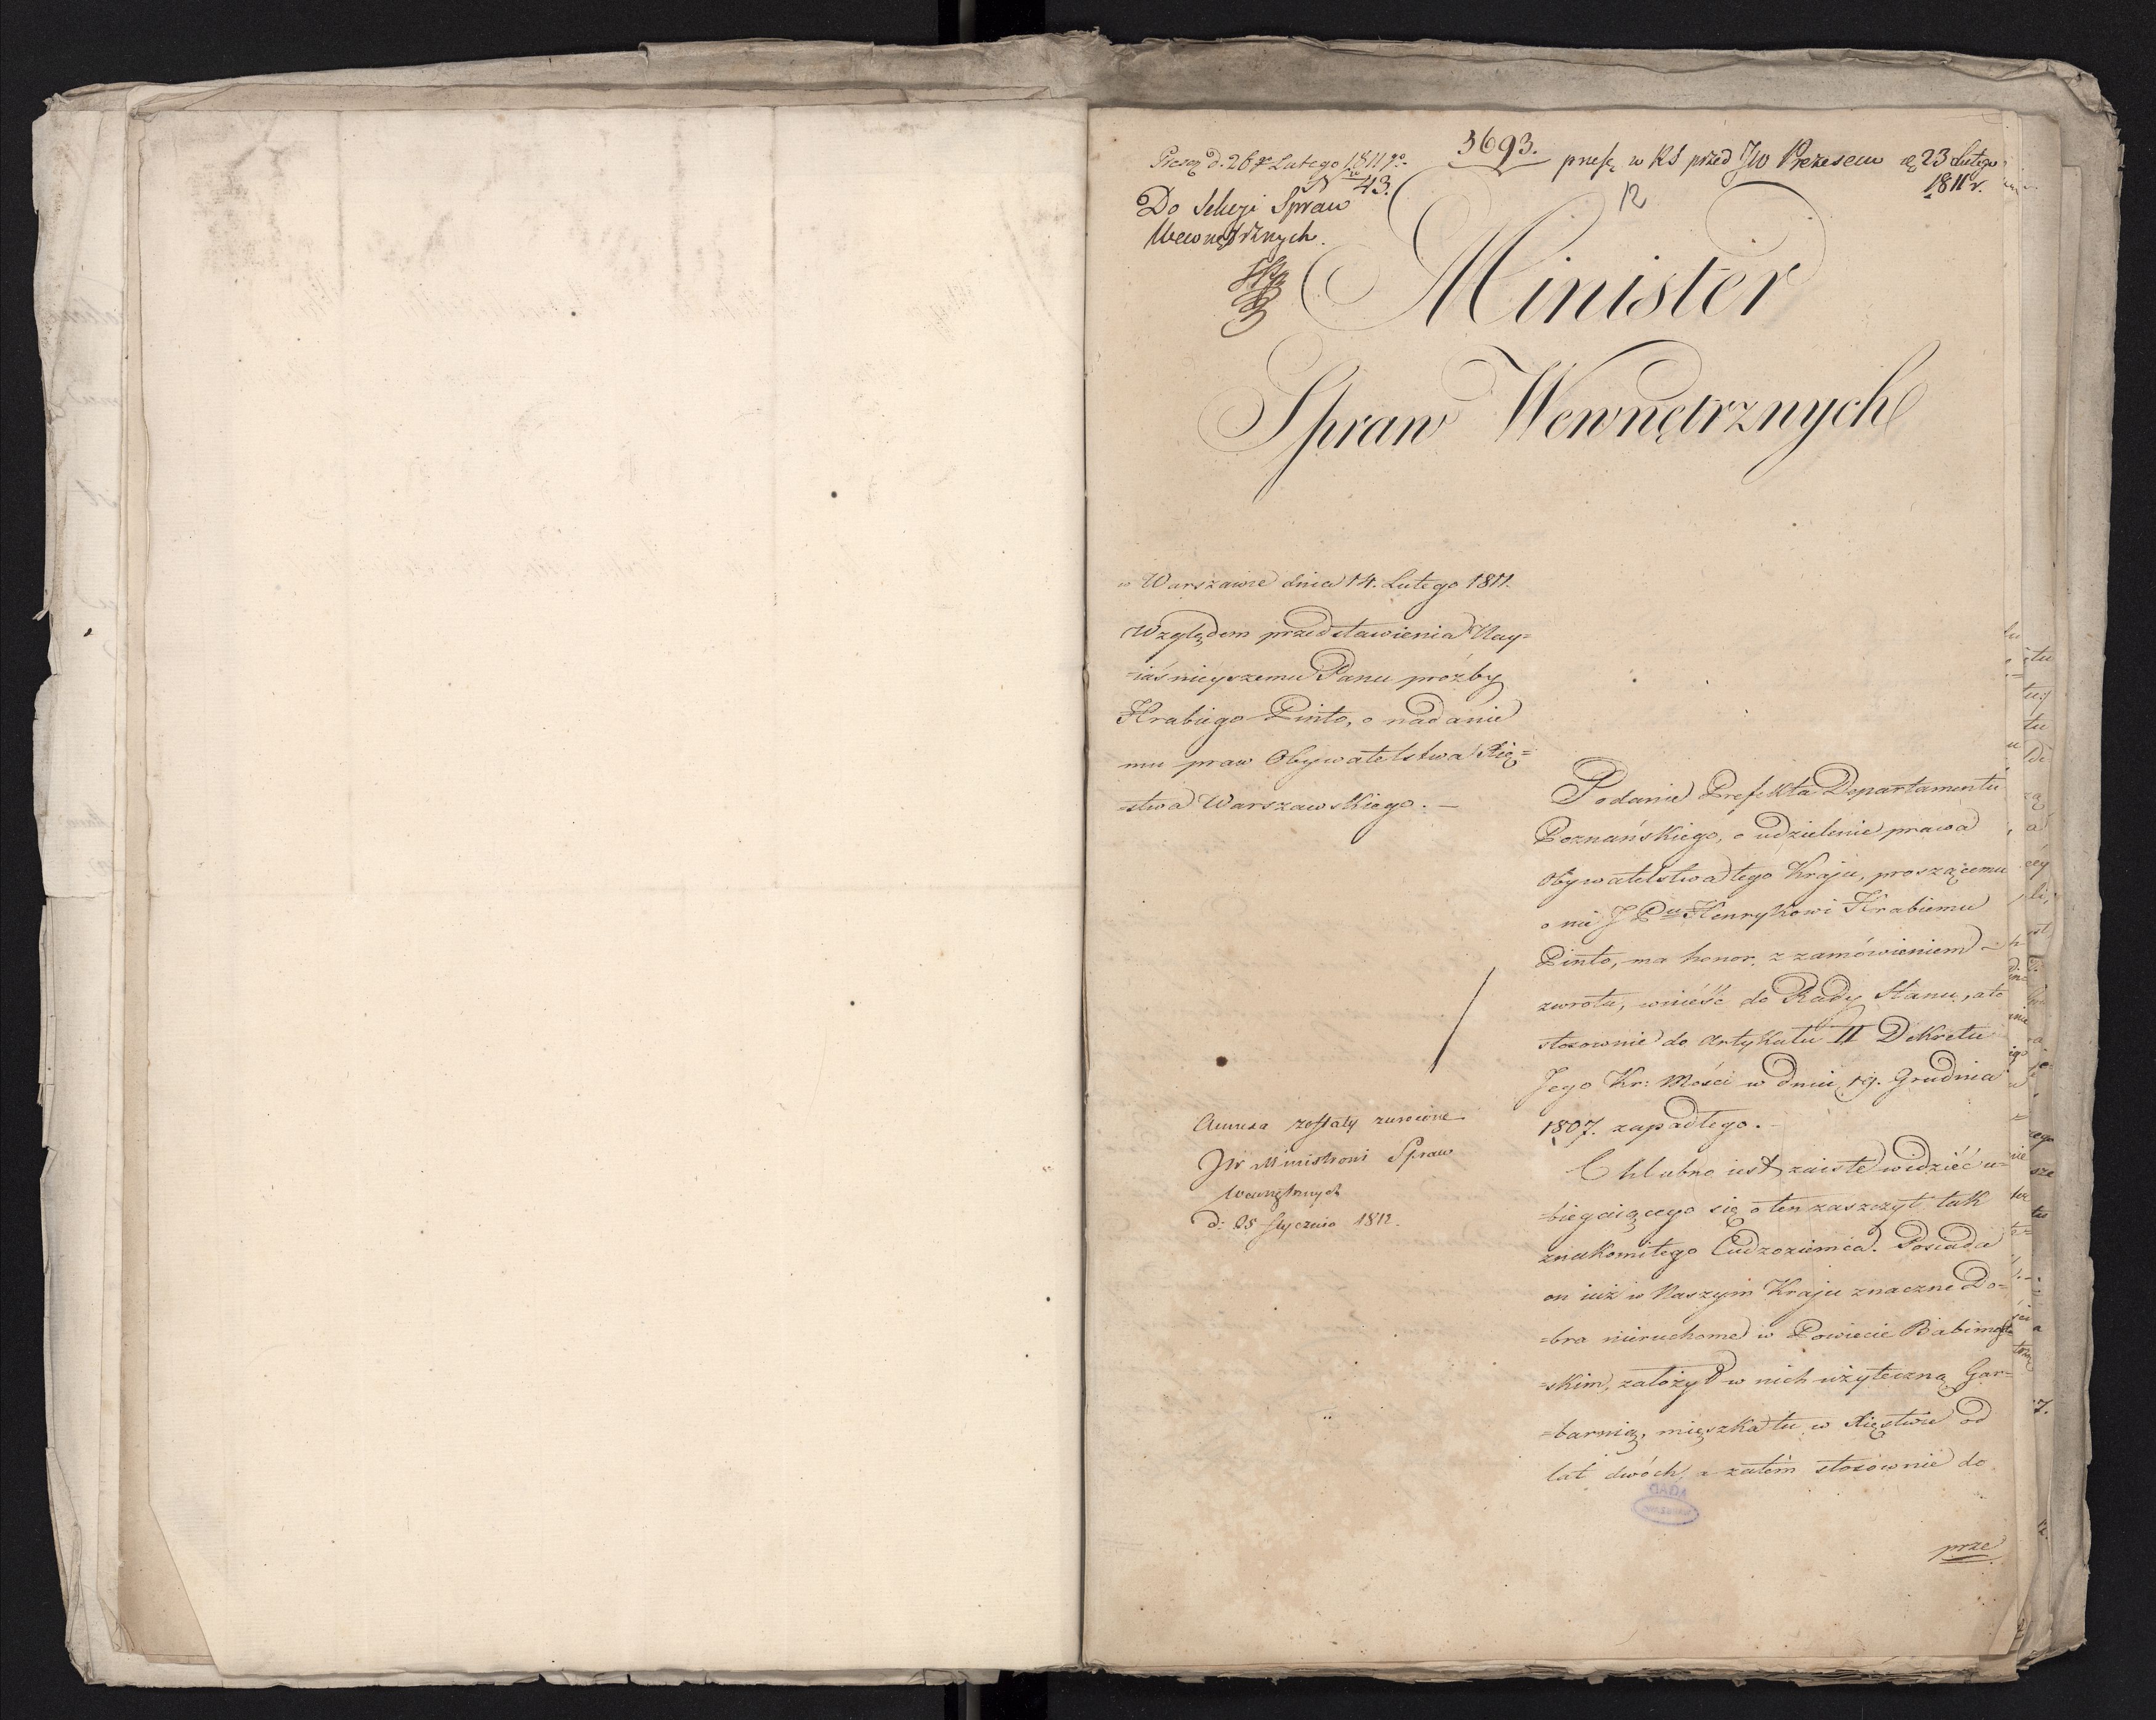 3693.
Presen d. 26go Lutego 1811 go
N 43.
Do Sekcyi Spraw
Wewnętrznych.
w RS przed JW Prezesem d 23 Lutego
1811 r.
12
Minister
Spraw Wewnętrznych
w Warszawie dnia 14. Lutego 1811.
Względem przedstawienia Nay=
=iaśnieyszemu Panu prożby
Hrabiego Pinto, o nadanie
mu praw Obywatelstwa Xię=
=stwa Warszawskiego. —
Podanie Prefekta Departamentu
Poznańskiego, o udzielenie prawa
Obywatelstwa tego Kraju, proszącemu
o nie J Pu Henrykowi Hrabiemu
Pinto, ma honor, z zamówieniem
zwrotu, wnieść do Rady Stanu, a to
stosownie do Artykułu II Dekretu
Jego Kr: Mości w dniu 19. Grudnia
1807. zapadłego. —
Chlubno iest zaiste widzieć u=
=biegaiącego się o ten zaszczyt tak
znakomitego Cudzoziemca. Posiada
on iuż w Naszym Kraju znaczne Do=
=bra nieruchome w Powiecie Babimost
=skim, założył w nich użyteczną Gar=
=barnią, mieszka tu w Xięstwie od
lat dwóch, a zatém stosownie do
prze
Annexa zostały zwrócone
JW Ministrowi Spraw
Wewnętrznych
d: 25 Stycznia 1812.
AGAD